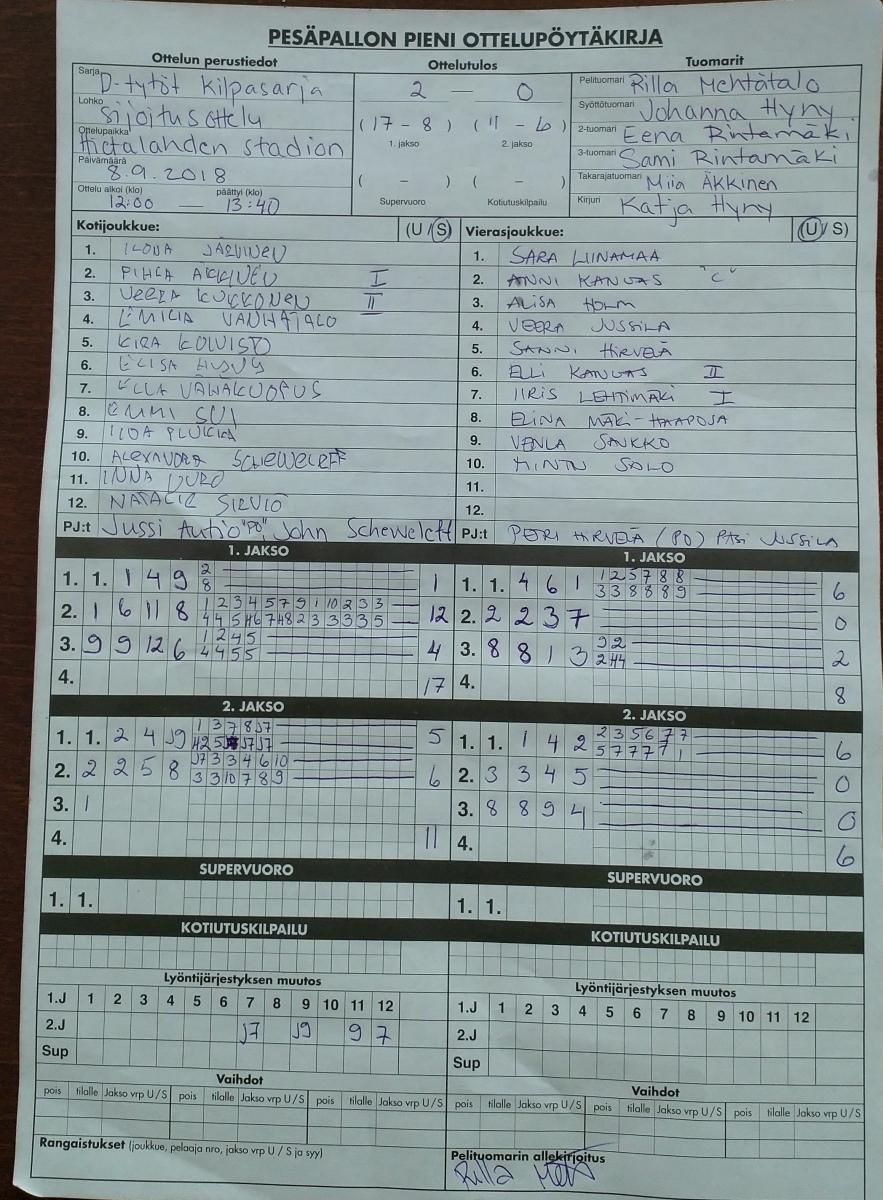 PESÄPALLON PIENI OTTELUPÖYTÄKIRJA
Ottelun perustiedot
Sarja D-tytöt Kilpasarja
Lohko Sijoitusottelu
Ottelupaikka Hietalahden stadion
Päivämäärä 8.9.2018
Ottelu alkoi (klo) päättyi (klo)
12:00 — 13:40
Ottelutulos
2 — 0
(17 - 8) (11 - 6)
1. jakso 2. jakso
( - ) ( - )
Supervuoro Kotiutuskilpailu
Tuomarit
Pelituomari Rilla Mehtätalo
Syöttötuomari Johanna Hyny
2-tuomari Eena Rintamäki
3-tuomari Sami Rintamäki
Takarajatuomari Miia Äkkinen
Kirjuri Katja Hyny
Kotijoukkue: (U/S)
1. ILONA JÄRVINEN
2. PIHLA ÄKKINEN I
3. VEERA KUKKONEN II
4. EMILIA VANHATALO
5. KIRA KOIVISTO
6. ELISA
7. ELLA VÄHÄKUOPUS
8. EMMI SUI
9. IIDA
10. ALEXANDRA SCHEWELEFF
11. INNA
12. NATALIE SIRVIÖ
PJ:t Jussi Autio "PO", John Scheweleff
Vierasjoukkue: (U/S)
1. SARA LIINAMAA
2. ANNI KANGAS "C"
3. ALISA HOLM
4. VEERA JUSSILA
5. SANNI HIRVELÄ
6. ELLI KANGAS II
7. IIRIS LEHTIMÄKI I
8. ELINA MÄKI-HAAPOJA
9. VENLA SAUKKO
10. MINTTU SALO
11.
12.
PJ:t PETRI HIRVELÄ (PO) PASI JUSSILA
1. JAKSO
1. 1. 1 4 9 2 1
8
2. 1 6 11 8 1 2 3 4 5 7 9 1 10 2 3 3 12
3. 9 9 12 6 1 2 4 5 4
4 4 5 5
4. 17
1. JAKSO
1. 1. 4 6 1 1 2 5 7 8 8 6
3 3 8 8 8 9
2. 2 2 3 7 0
3. 8 8 1 3 9 2 2
2 44
4. 8
2. JAKSO
1. 1. 2 4 J9 1 3 7 8 J7 5
2. 2 2 5 8 J7 3 3 4 6 10 6
3 3 10 7 8 9
3. 1
4. 11
2. JAKSO
1. 1. 1 4 2 2 3 5 6 7 7 6
5 7 7 7 7 1
2. 3 3 4 5 0
3. 8 8 9 4 0
4. 6
SUPERVUORO
1. 1.
SUPERVUORO
1. 1.
KOTIUTUSKILPAILU
KOTIUTUSKILPAILU
Lyöntijärjestyksen muutos
1.J 1 2 3 4 5 6 7 8 9 10 11 12
2.J J7 J9 9 7
Sup
Lyöntijärjestyksen muutos
1.J 1 2 3 4 5 6 7 8 9 10 11 12
2.J
Sup
Vaihdot
pois tilalle Jakso vrp U/S pois tilalle Jakso vrp U/S pois tilalle Jakso vrp U/S
Vaihdot
pois tilalle Jakso vrp U/S pois tilalle Jakso vrp U/S pois tilalle Jakso vrp U/S
Rangaistukset (joukkue, pelaaja nro, jakso vrp U / S ja syy)
Pelituomarin allekirjoitus
Rilla